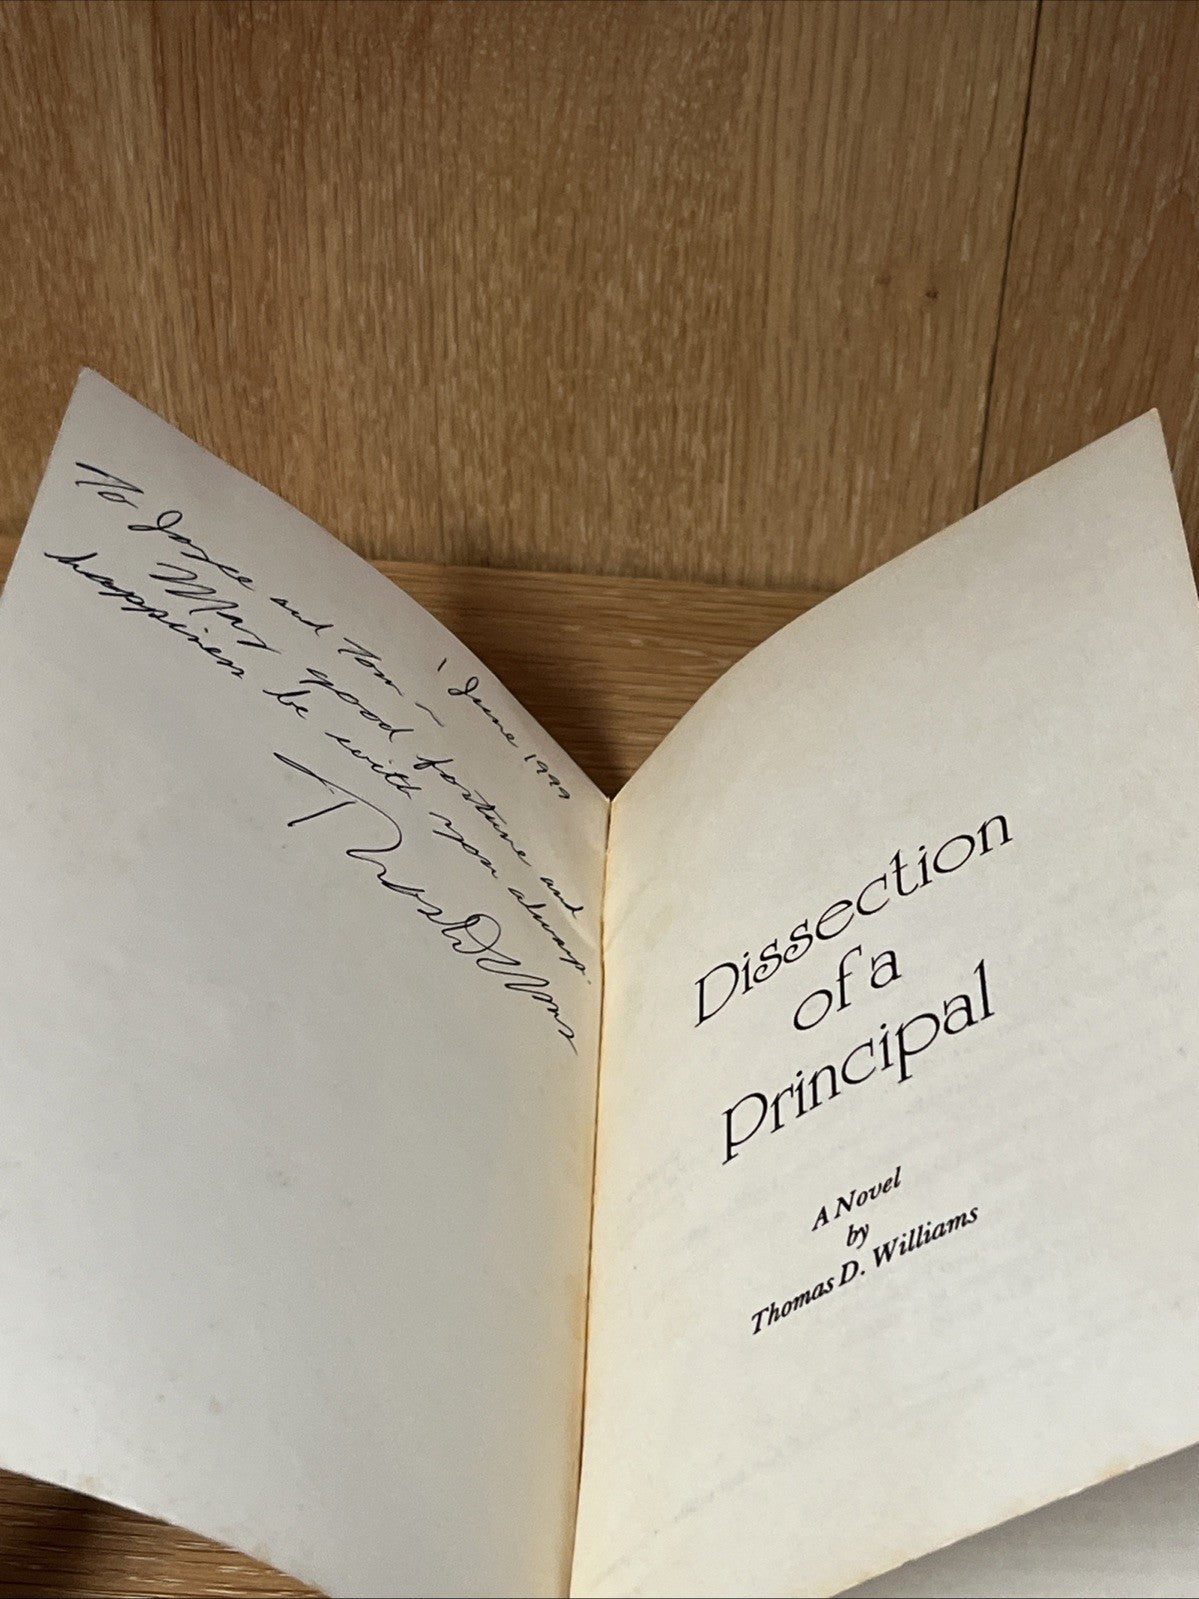 1 June 1999
To Joyce and Tom –
May good fortune and
happiness be with you always.
Thomas D Williams
Dissection
of a
Principal
A Novel
by
Thomas D. Williams